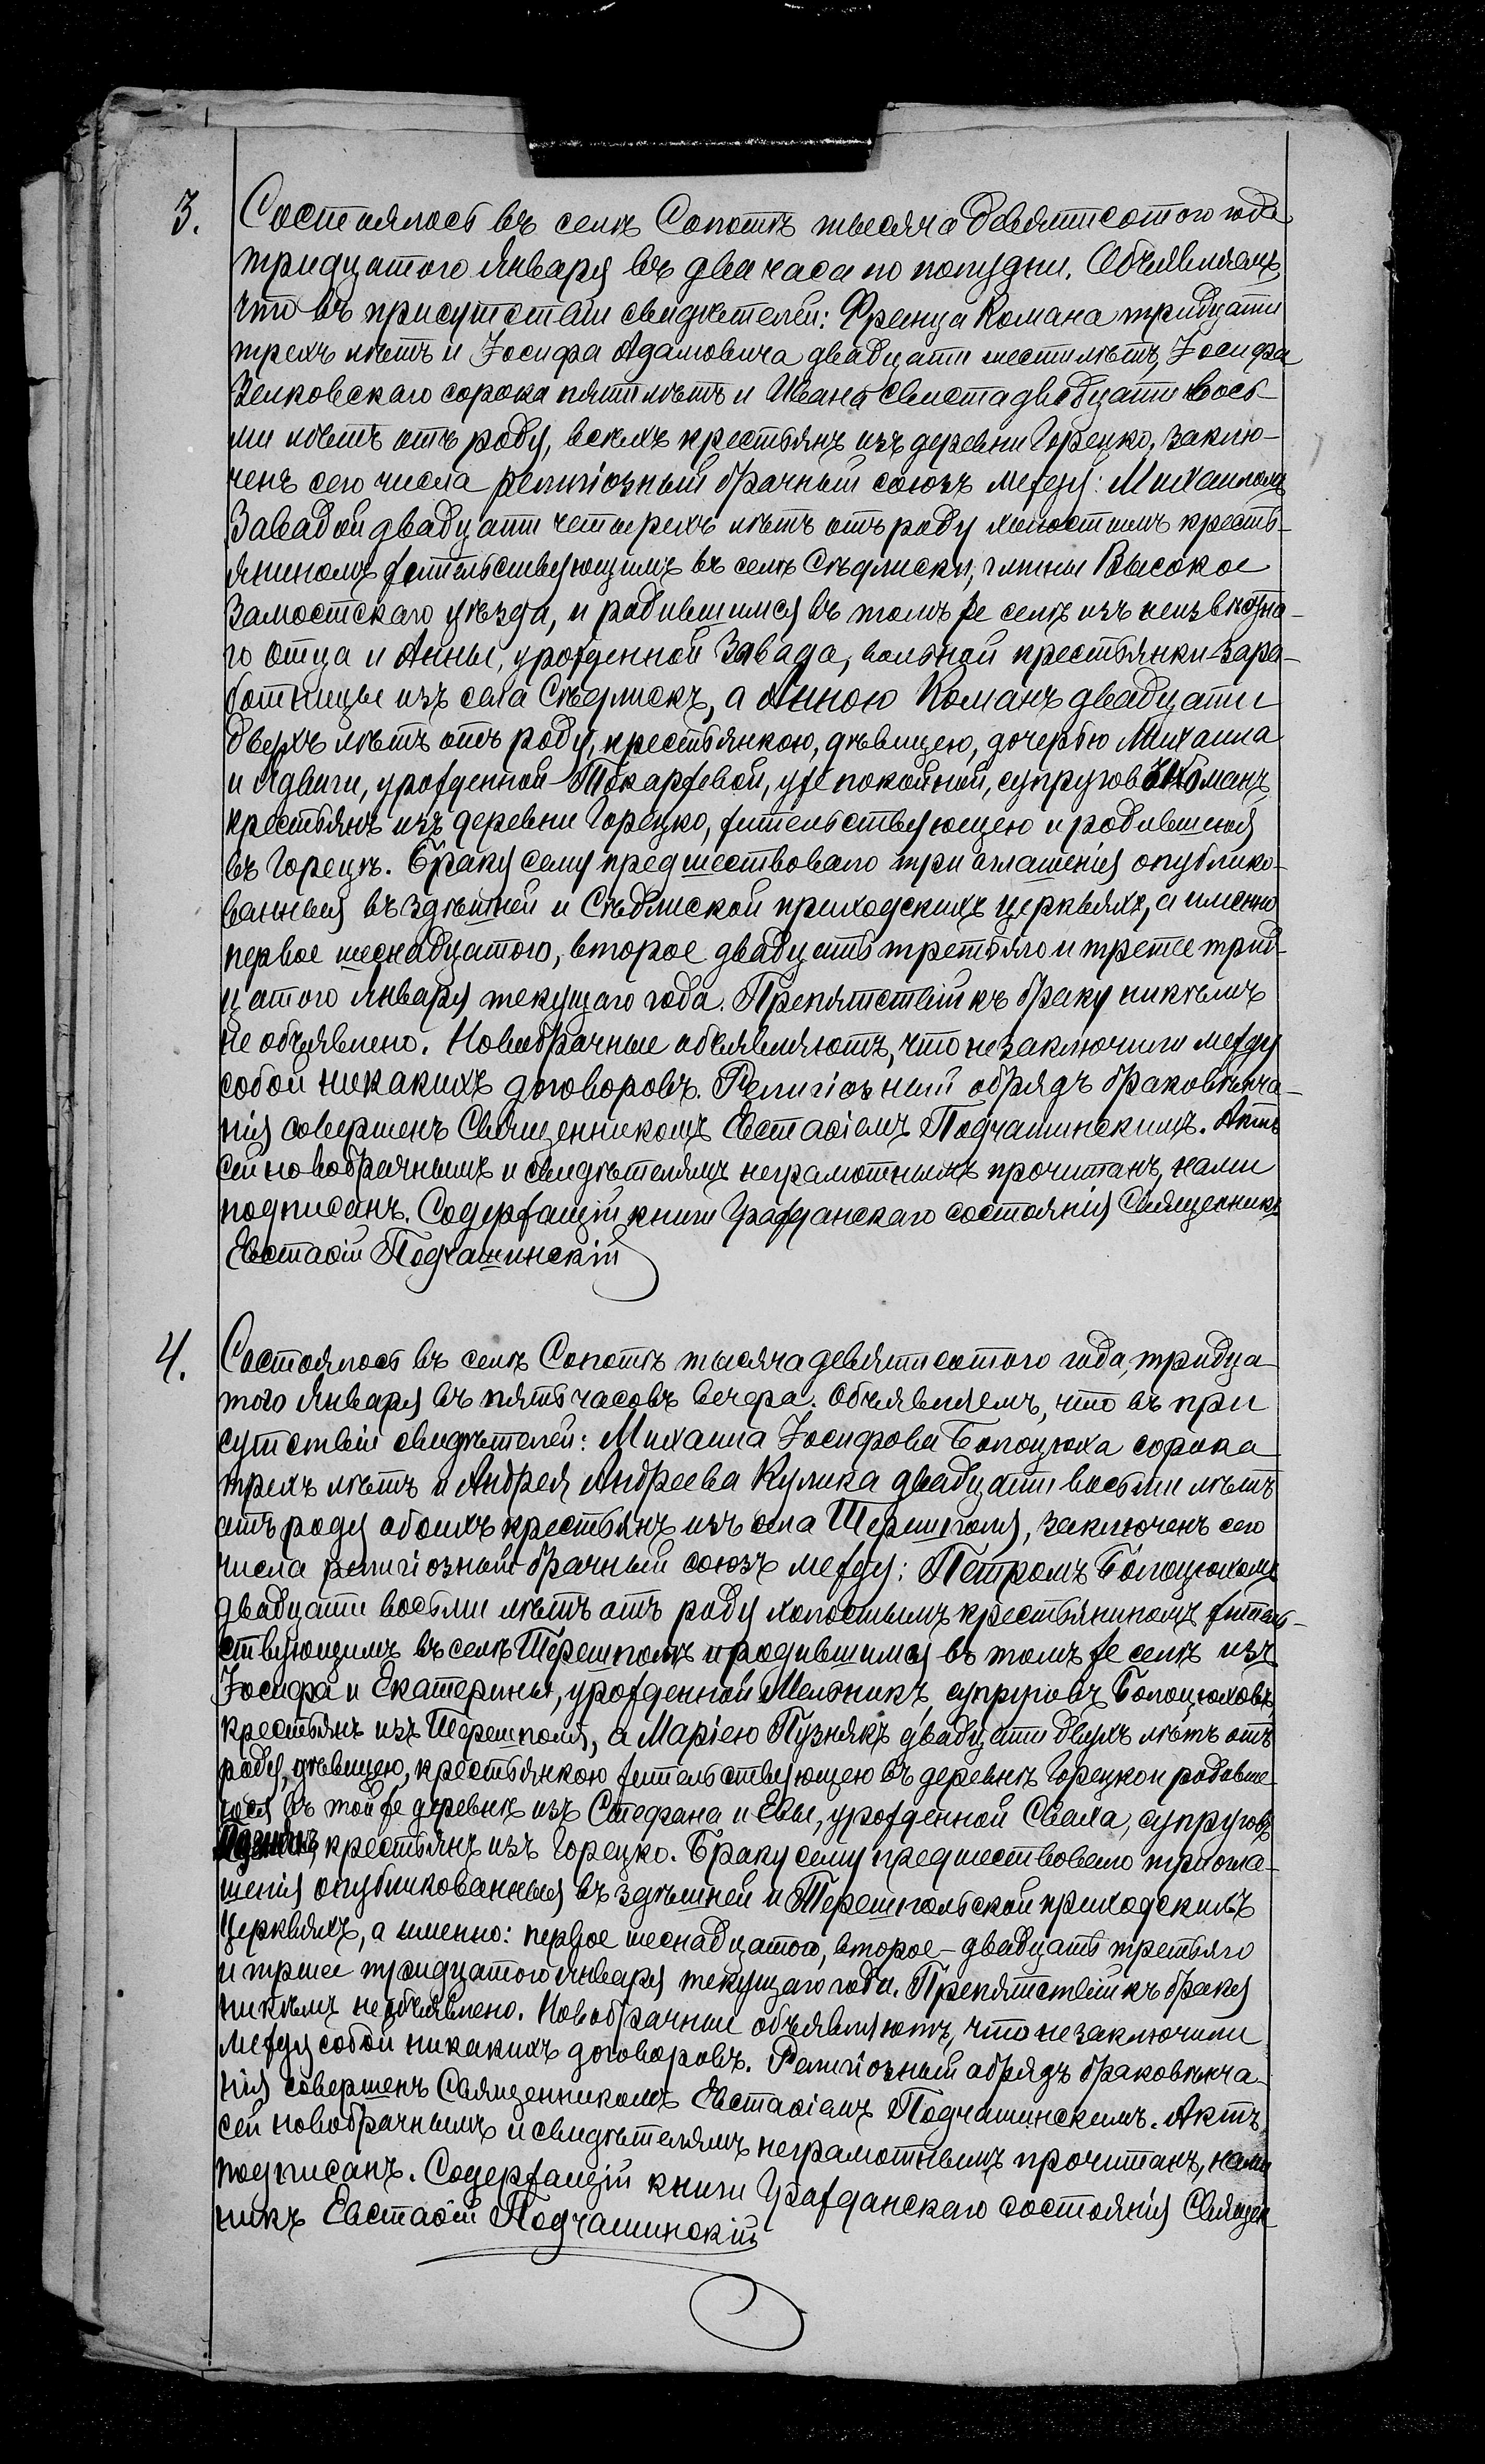 3.
Состоялось въ селѣ Сопотѣ тысяча девятисотого года
тридцатого Января въ два часа по полудни. Объявляемъ,
что въ присутствіи свидѣтелей: Франца Комана тридцати
трехъ лѣтъ и Іосифа Адамовича двадцати шести лѣтъ, Іосифа
Зелковскаго сорока пяти лѣтъ и Ивана Свиста двадцати вось-
ми лѣтъ отъ роду, всѣхъ крестьянъ изъ деревни Горецко, заклю-
ченъ сего числа религіозный брачный союзъ между: Михаиломъ
Завадой двадцати четырехъ лѣтъ отъ роду холостымъ кресть-
яниномъ жительствующимъ въ селѣ Сѣдлиски, гмины Высокое
Замостскаго уѣзда, и родившимся въ томъ же селѣ изъ неизвѣстна-
го отца и Анны, урожденной Завада, вольной крестьянки-зара-
ботницы изъ села Сѣдлискъ, а Анною Команъ двадцати
двухъ лѣтъ отъ роду, крестьянкою, дѣвицею, дочерью Михаила
и Ядвиги, урожденной Токаржевой, уже покойной, супруговъ Команъ
крестьянъ изъ деревни Горецко, жительствующею и родившеюся
въ Горецкѣ. Браку сему предшествовало три оглашенія опублико-
ванныя въ здѣшней и Сѣдлиской приходскихъ церквяхъ, а именно
первое шеснадцатого, второе двадцать третьяго и третье трид-
цатого Января текущаго года. Препятствій къ браку никѣмъ
не объявлено. Новобрачные объявляютъ, что не заключили между
собой никакихъ договоровъ. Религіозный обрядъ браковѣнча-
нія совершенъ Священникомъ Евстафіемъ Подчашинскимъ. Актъ
сей новобрачнымъ и свидѣтелямъ неграмотнымъ прочитанъ, нами
подписанъ. Содержащій книги Гражданскаго состоянія Священникъ
Евстафій Подчашинскій
4.
Состоялось въ селѣ Сопотѣ тысяча девятисотого года, тридца-
того Января въ пять часовъ вечера. Объявляемъ, что въ при
сутствіи свидѣтелей: Михаила Іосифова Болоцюха сорока
трехъ лѣтъ и Андрея Андреева Кулика двадцати восьми лѣтъ
отъ роду обоихъ крестьянъ изъ села Терешполя, заключенъ сего
числа религіозный брачный союзъ между: Петромъ Болоцюхомъ
двадцати восьми лѣтъ отъ роду холостымъ крестьяниномъ житель-
ствующимъ въ селѣ Терешполѣ и родившимся въ томъ же селѣ изъ
Іосифа и Екатерины, урожденной Мельникъ, супруговъ Болоцюховъ
крестьянъ изъ Терешполя, а Маріею Пузнякъ двадцати двухъ лѣтъ отъ
роду, дѣвицею, крестьянкою жительствующею въ деревнѣ Горецко и родивше-
юся въ той же деревнѣ изъ Стефана и Евы, урожденной Свала, супруговъ
крестьянъ изъ Горецко. Браку сему предшествовало три огла-
шенія опубликованныя въ здѣшней и Терешпольской приходскихъ
церквяхъ, а именно: первое шеснадцатого, второе - двадцать третьяго
и третье тридцатого Января текущаго года. Препятствій къ браку
никѣмъ не объявлено. Новобрачные объявляютъ, что не заключили
между собой никакихъ договоровъ. Религіозный обрядъ браковѣнча-
нія совершенъ Священникомъ Евстафіемъ Подчашинскимъ. Актъ
сей новобрачнымъ и свидѣтелямъ неграмотнымъ прочитанъ, нами
подписанъ. Содержащій книги Гражданскаго состоянія Священ-
никъ Евстафій Подчашинскій